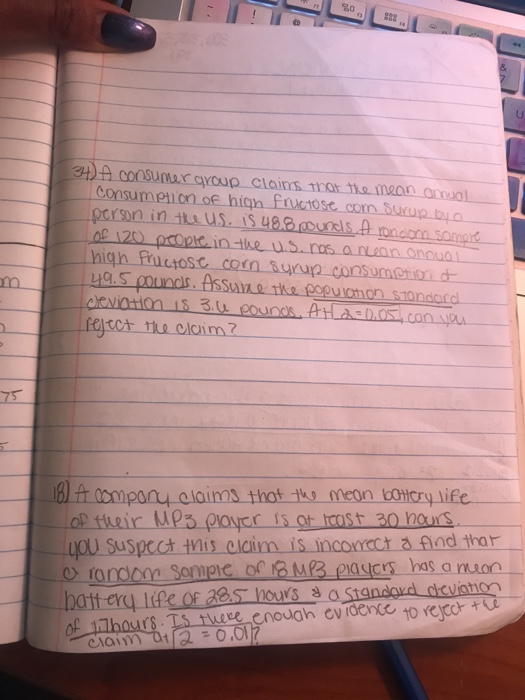 34) A consumer group claims that the mean annual
consumption of high fructose corn syrup by a
person in the U.S. is 48.8 pounds. A random sample
of 120 people in the U.S. has a mean annual
high fructose corn syrup consumption of
49.5 pounds. Assume the population standard
deviation is 3.6 pounds. At 2=0.05, can you
reject the claim?
18) A company claims that the mean battery life
of their MP3 player is at least 30 hours.
you suspect this claim is incorrect & find that
a random sample of 18 MP3 players has a mean
battery life of 28.5 hours & a standard deviation
of 1.7 hours. Is there enough evidence to reject the
claim at 2=0.01?
m
75